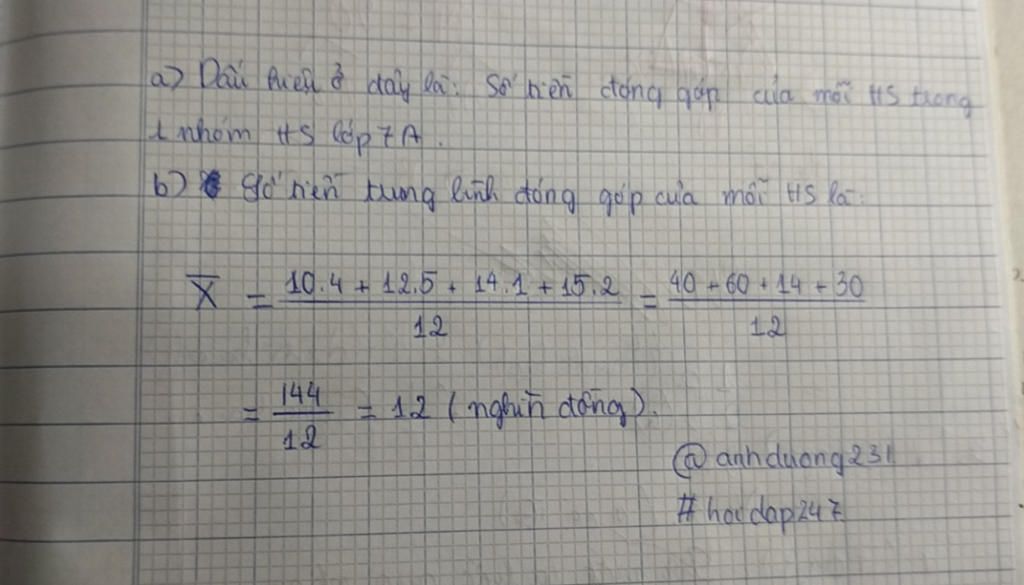 a) Dấu hiệu ở đây là: Số tiền đóng góp của mỗi HS trong
1 nhóm HS lớp 7A.
b) Số tiền trung bình đóng góp của mỗi HS là:
X̅ = (10.4 + 12.5 + 14.1 + 15.2)/12 = (40 + 60 + 14 + 30)/12
= 144/12 = 12 (nghìn đồng).
@anhduong231
#hoidap247